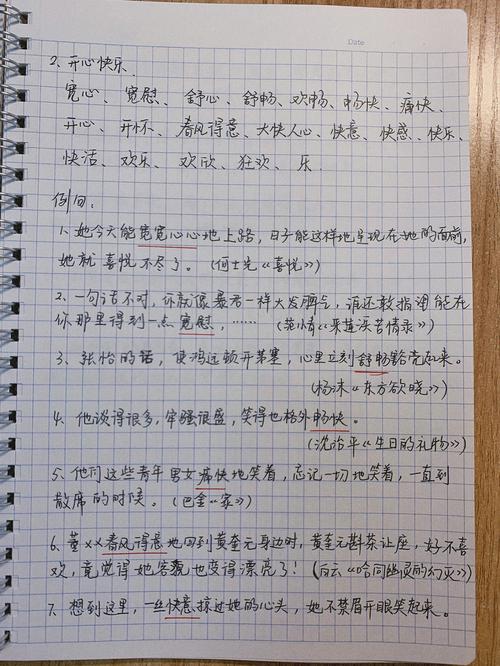 Date
2、开心快乐.
宽心、宽慰、舒心、舒畅、欢畅、畅快、痛快、
开心、开怀、春风得意、大快人心、快意、快感、快乐、
快活、欢乐、欢欣、狂欢、乐.
例间:
1、她今天能宽宽心心地上路,日子能这样地呈现在她的面前,
她就喜悦不尽了。(何士光《喜悦》)
2、一句话不对,你就像暴君一样大发脾气,谁还敢指望能在
你那里得到一点宽慰,……(范小青《采莲浜苦情录》)
3、张怡的话,使鸿远顿开茅塞,心里立刻舒畅豁亮起来。
(杨沫《东方欲晓》)
4、他谈得很多,牢骚很盛,笑得也格外畅快。
(沈治平《生日的礼物》)
5、他们这些青年男女痛快地笑着,忘记一切地笑着,一直到
散席的时候。(巴金《家》)
6、董××春风得意地回到黄奎元身边时,黄奎元斟茶让座,好不喜
欢,竟觉得她容貌也变得漂亮了!(白云《哈同幽灵的幻灭》)
7、想到这里,一丝快意掠过她的心头,她不禁眉开眼笑起来。